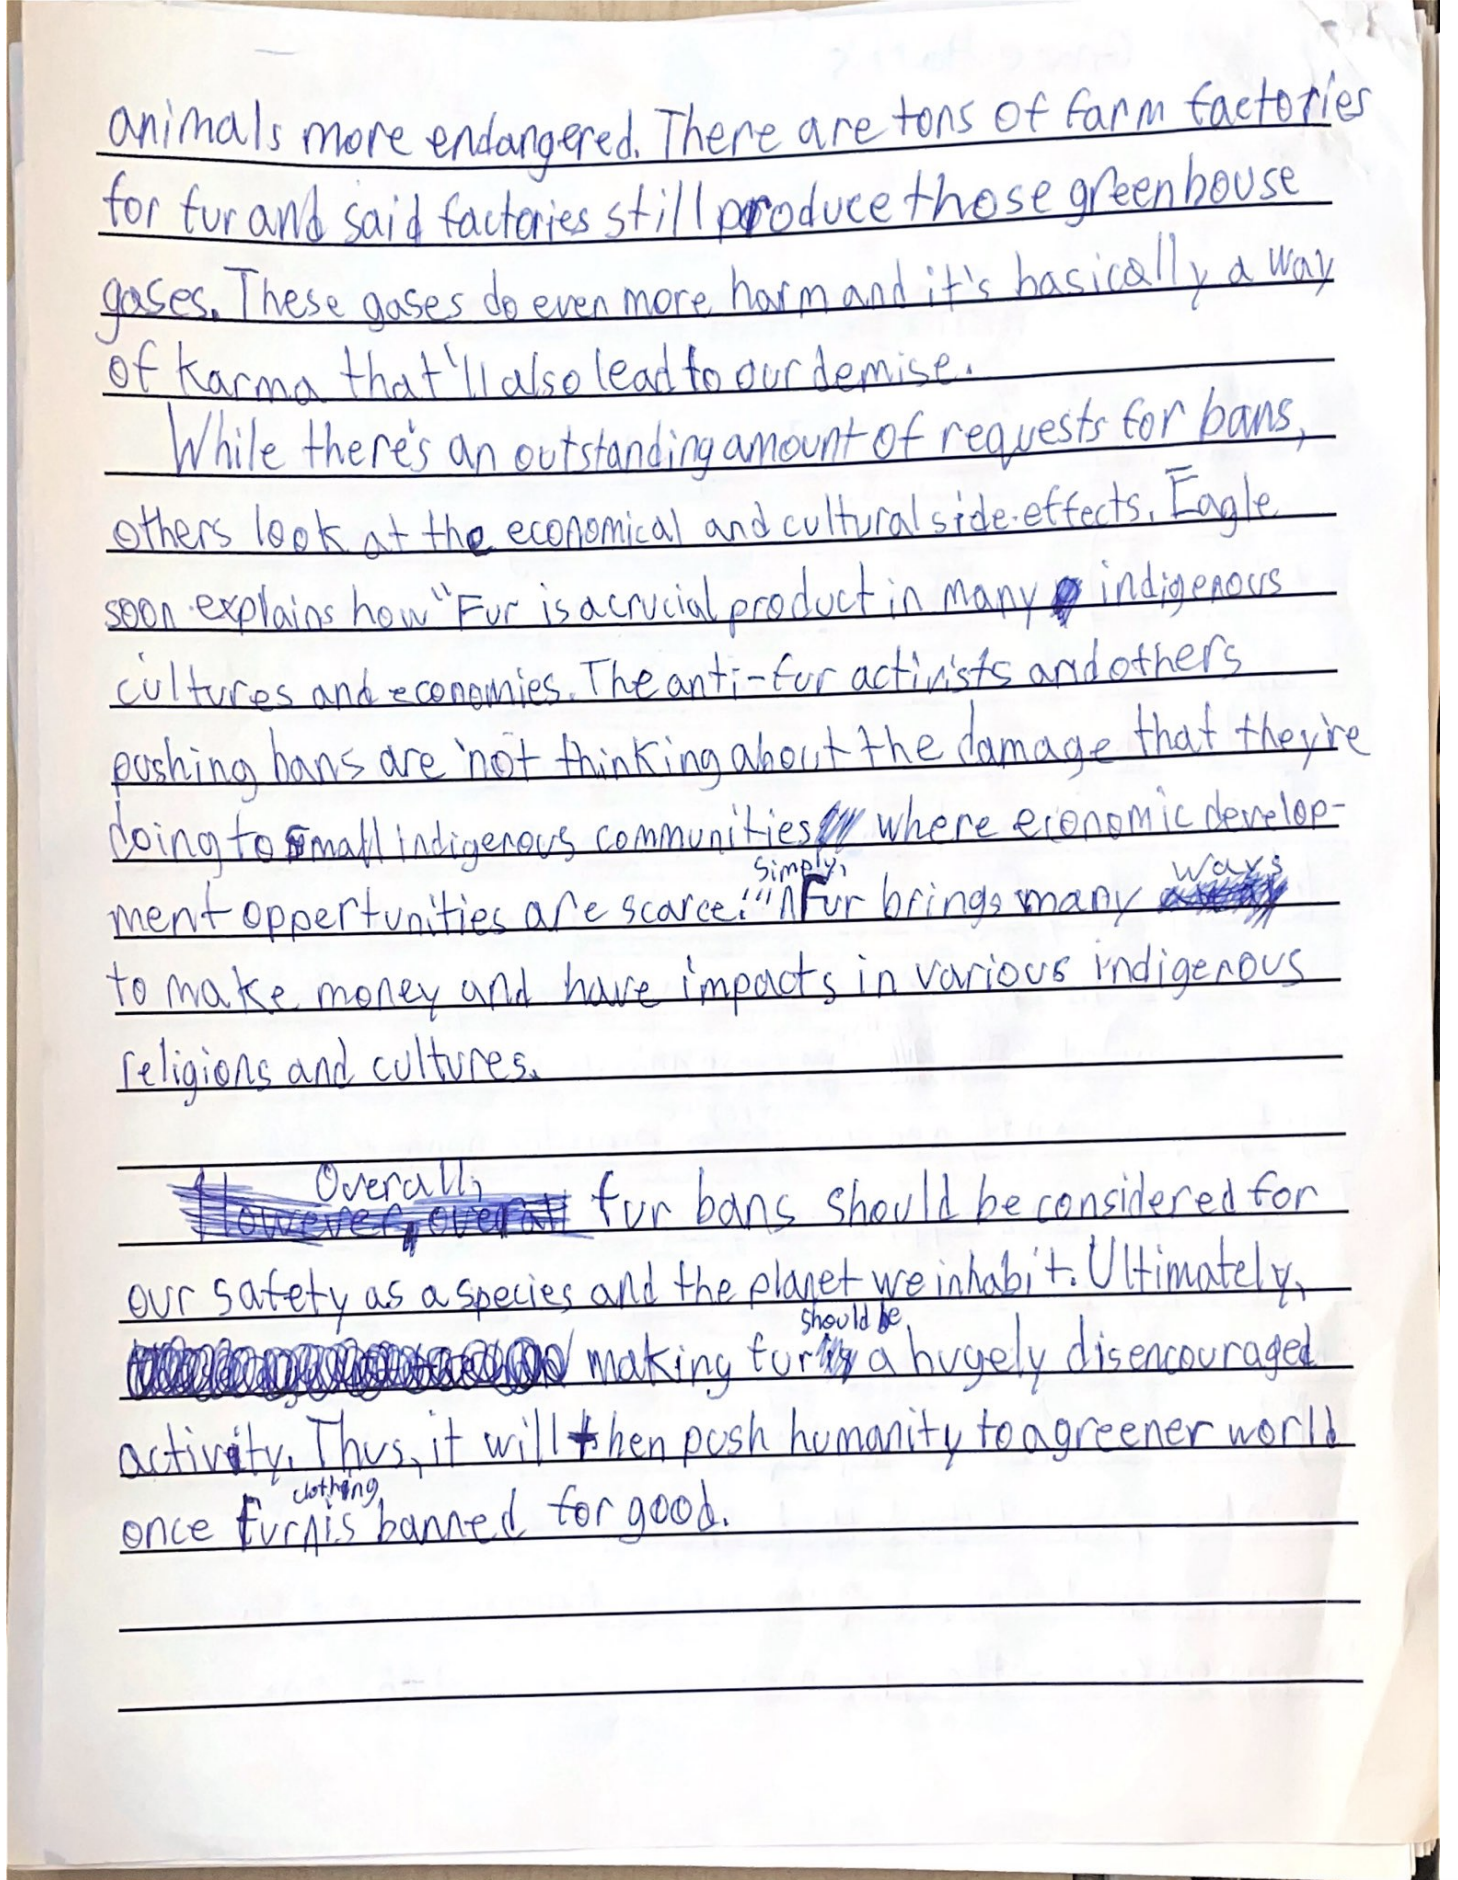 animals more endangered. There are tons of farm factories
for fur and said factories still produce those greenhouse
gases. These gases do even more harm and it's basically a way
of karma that'll also lead to our demise.
While there's an outstanding amount of requests for bans,
others look at the economical and cultural side-effects. Eagle
soon explains how "Fur is a crucial product in many indigenous
cultures and economies. The anti-fur activists and others
pushing bans are not thinking about the damage that they're
doing to small indigenous communities where economic develop-
ment oppertunities are scarce." Simply, Fur brings many ways
to make money and have impacts in various indigenous
religions and cultures.
Overall, fur bans should be considered for
our safety as a species and the planet we inhabit. Ultimately,
making fur should be a hugely disencouraged
activity. Thus, it will then push humanity to a greener world
once fur clothing is banned for good.